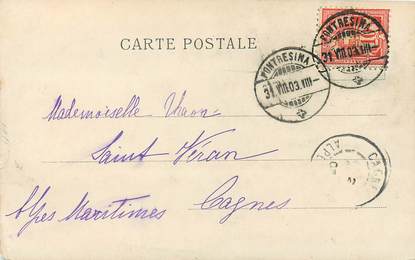 CARTE POSTALE
PONTRESINA
31.VIII.03.VIII-
PONTRESINA
31.VIII.03.VIII-
10
Mademoiselle
Saint Véran
Alpes Maritimes Cagnes
CAGNES
ALP